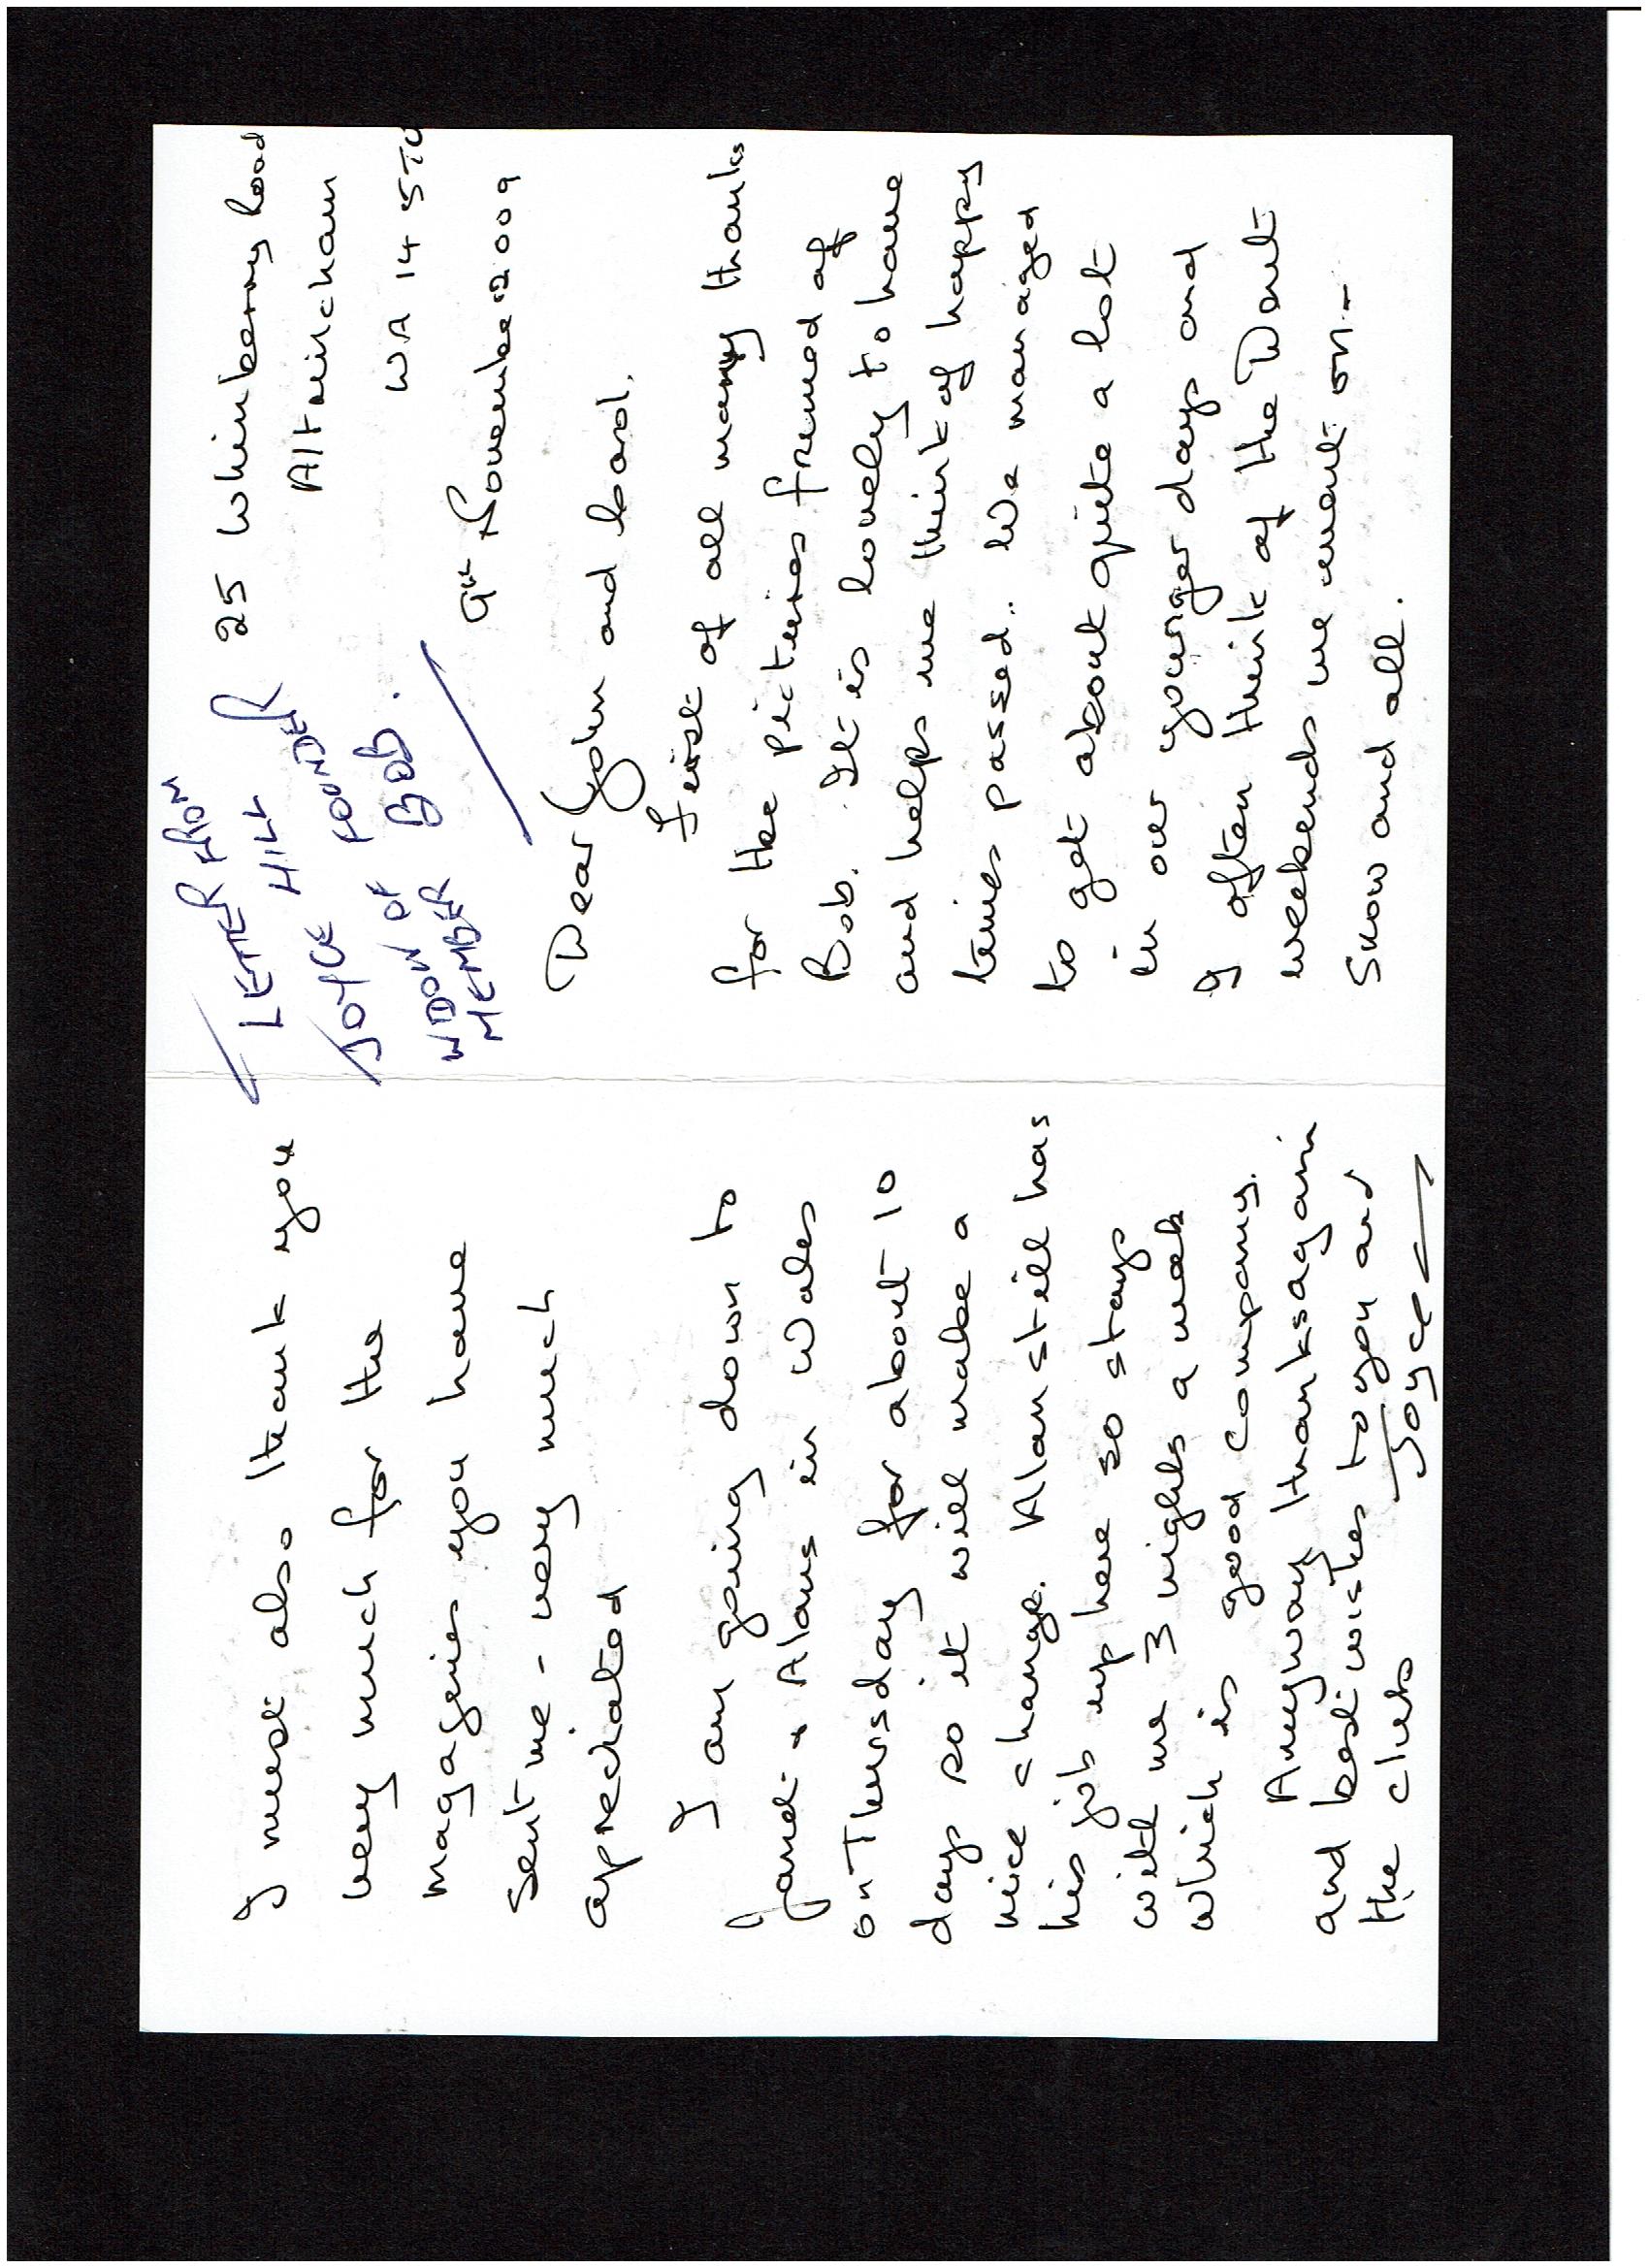 LETTER FROM
JOYCE HILL
WIDOW OF FOUNDER
MEMBER BOB.
25 Whinberry Road
Altrincham
WA 14
9th November 2009
Dear John and Carol,
First of all many thanks
for the pictures framed of
Bob. It is lovely to have
and helps me think of happy
times passed.. We managed
to get about quite a lot
in our younger days and
I often think of the Dent
weekends we went on -
Snow and all.
I must also thank you
very much for the
magazines you have
sent me - very much
apreciated
I am going down to
Janet + Alans in Wales
on Thursday for about 10
days so it will make a
nice change. Alan still has
his job up here so stays
with me 3 nights a week
which is good company.
Anyway thanks again
and best wishes to you and
the club Joyce